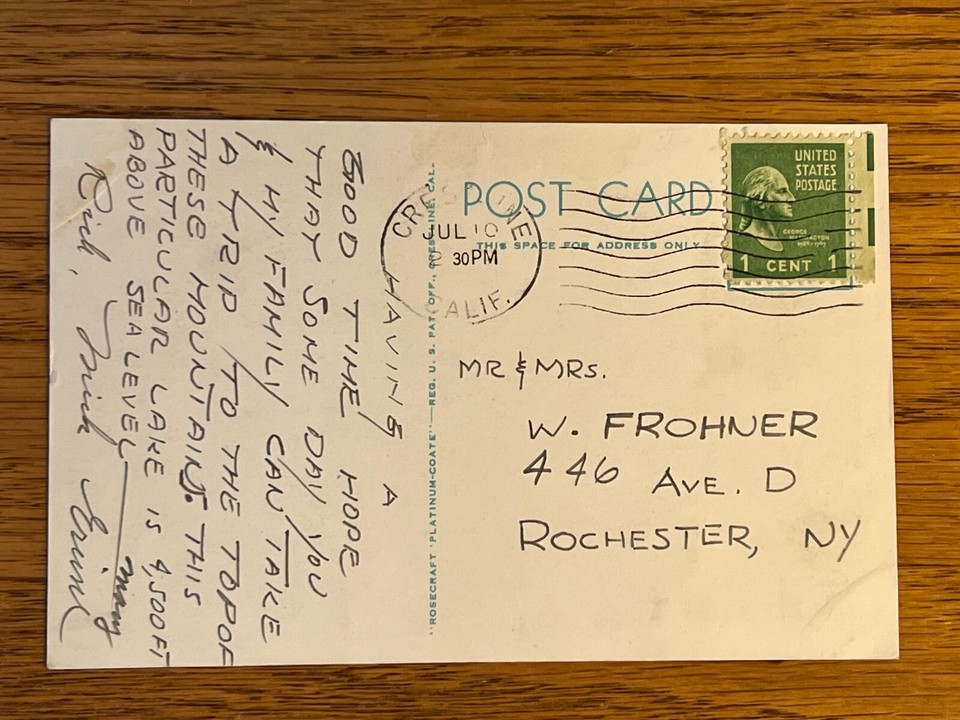 HAVING A
GOOD TIME HOPE
THAT SOME DAY YOU
& MY FAMILY CAN TAKE
A TRIP TO THE TOP OF
THESE MOUNTAINS. THIS
PARTICULAR LAKE IS 4,500 FT
ABOVE SEA LEVEL
"ROSECRAFT 'PLATINUM-COATE'"—REG. U. S. PAT. OFF., CRESTLINE, CAL.
POST CARD
THIS SPACE FOR ADDRESS ONLY
JUL 10
30 PM
CALIF.
UNITED
STATES
POSTAGE
GEORGE
WASHINGTON
1 CENT 1
MR & MRS.
W. FROHNER
446 AVE. D
ROCHESTER, NY